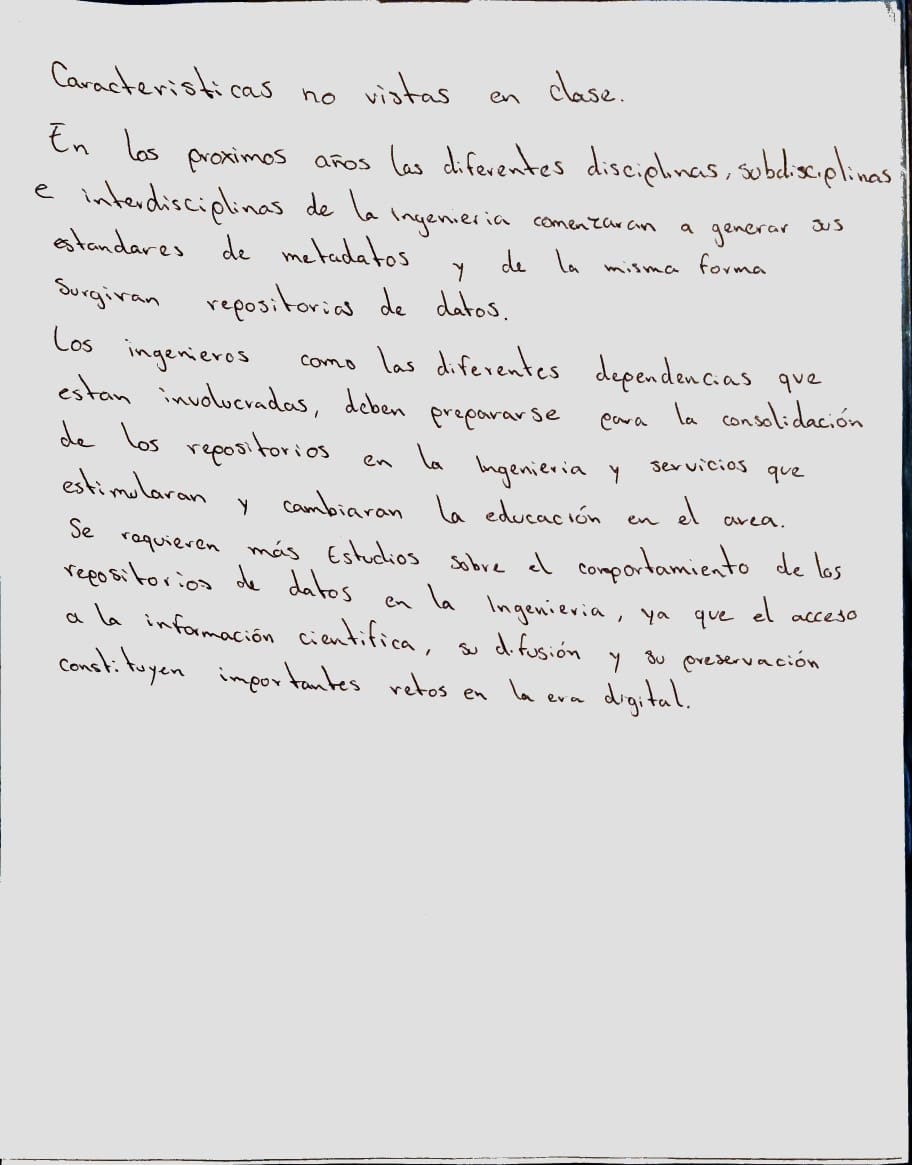 Caracteristicas no vistas en clase.
En los proximos años las diferentes disciplinas, subdisciplinas
e interdisciplinas de la Ingenieria comenzaran a generar sus
estandares de metadatos y de la misma forma
Surgiran repositorios de datos.
Los ingenieros como las diferentes dependencias que
estan involucradas, deben prepararse para la consolidación
de los repositorios en la Ingenieria y servicios que
estimularan y cambiaran la educación en el area.
Se requieren más Estudios sobre el comportamiento de los
repositorios de datos en la Ingenieria, ya que el acceso
a la información cientifica, su difusión y su preservación
constituyen importantes retos en la era digital.